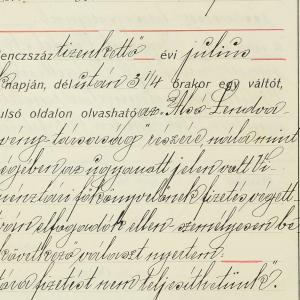 lenczszáz tizenkettő évi július
napján, délután 3 1/4 órakor egy váltót,
ulsó oldalon olvasható az "Alsó Lendva
vény-társaság" részére, nála mint
ségében az ugyanott jelen volt Vi-
énztári főkönyvelőnek fizetés végett
ván elfogadók ellen személyesen be
következő választ nyertem:
tára fizetést nem teljesíthetünk".